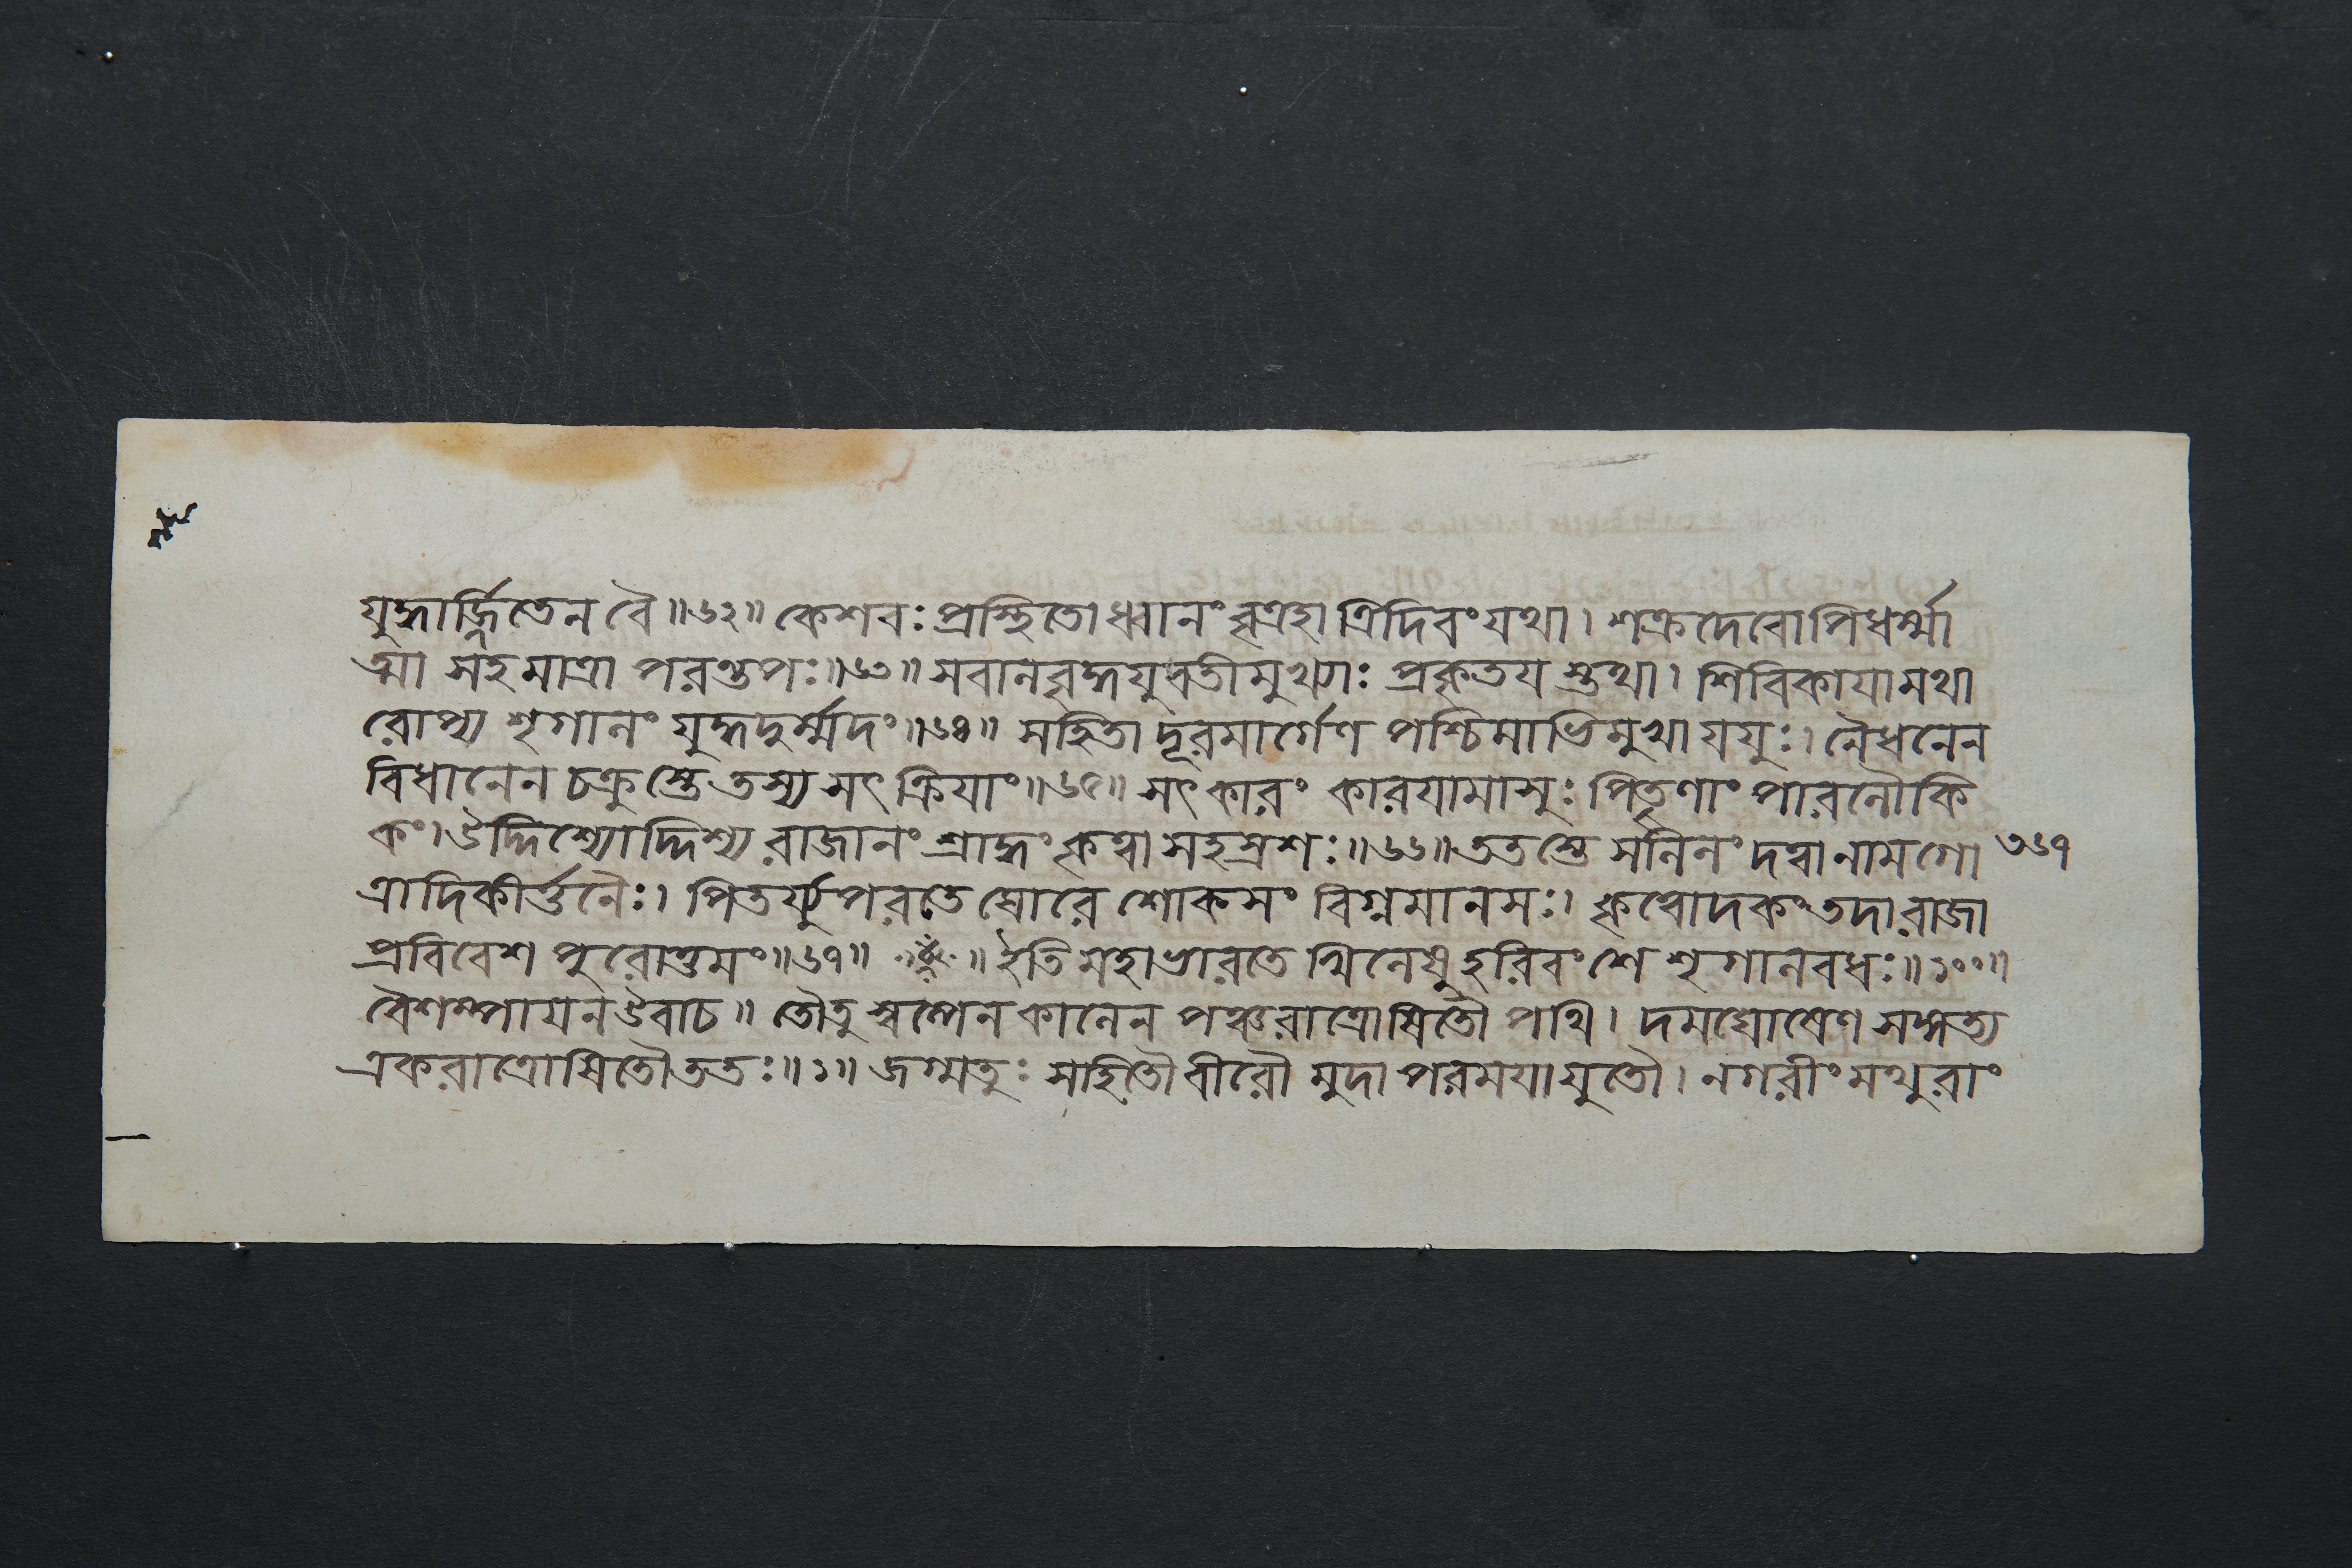 যুদ্ধার্জ্জিতেন বৈ॥৬২॥ কেশবঃ প্রস্থিতোধ্বানং বৃত্রহা ত্রিদিবং যথা। শক্রদেবোপিধর্ম্মা
ত্মা সহ মাত্রা পরন্তপঃ॥৬৩॥ সবালবৃদ্ধযুবতীমুখ্যাঃ প্রকৃতয স্তথা। শিবিকাযামথা
রোপ্য শৃগালং যুদ্ধদুর্ম্মদং॥৬৪॥ সহিতা দূরমার্গেণ পশ্চিমাভিমুখা যযুঃ। নৈধনেন
বিধানেন চক্রুস্তে তস্য সৎ ক্রিযাং॥৬৫॥ সৎ কারং কারযামাসুঃ পিতৄণাং পারলৌকি
কং। উদ্দিশ্যোদ্দিশ্য রাজানং শ্রাদ্ধং কৃত্বা সহস্রশঃ॥৬৬॥ ততস্তে সলিলং দত্বা নামগো
ত্রাদিকীর্ত্তনৈঃ। পিতর্য্যুপরতে ঘোরে শোকসং বিগ্নমানসঃ। কৃত্বোদকং তদা রাজা
প্রবিবেশ পুরোত্তমং॥৬৭॥ ॥ ইতি মহাভারতে খিলেষু হরিবংশে শৃগালবধঃ॥১০০॥
বৈশম্পাযন উবাচ॥ তৌতু স্বল্পেন কালেন পঞ্চরাত্রোষিতৌ পথি। দমঘোষেণ সঙ্গত্য
একরাত্রোষিতৌ ততঃ॥১॥ জগ্মতুঃ সহিতৌ বীরৌ মুদা পরমযা যুতৌ। নগরীং মথুরাং
৩৬৭